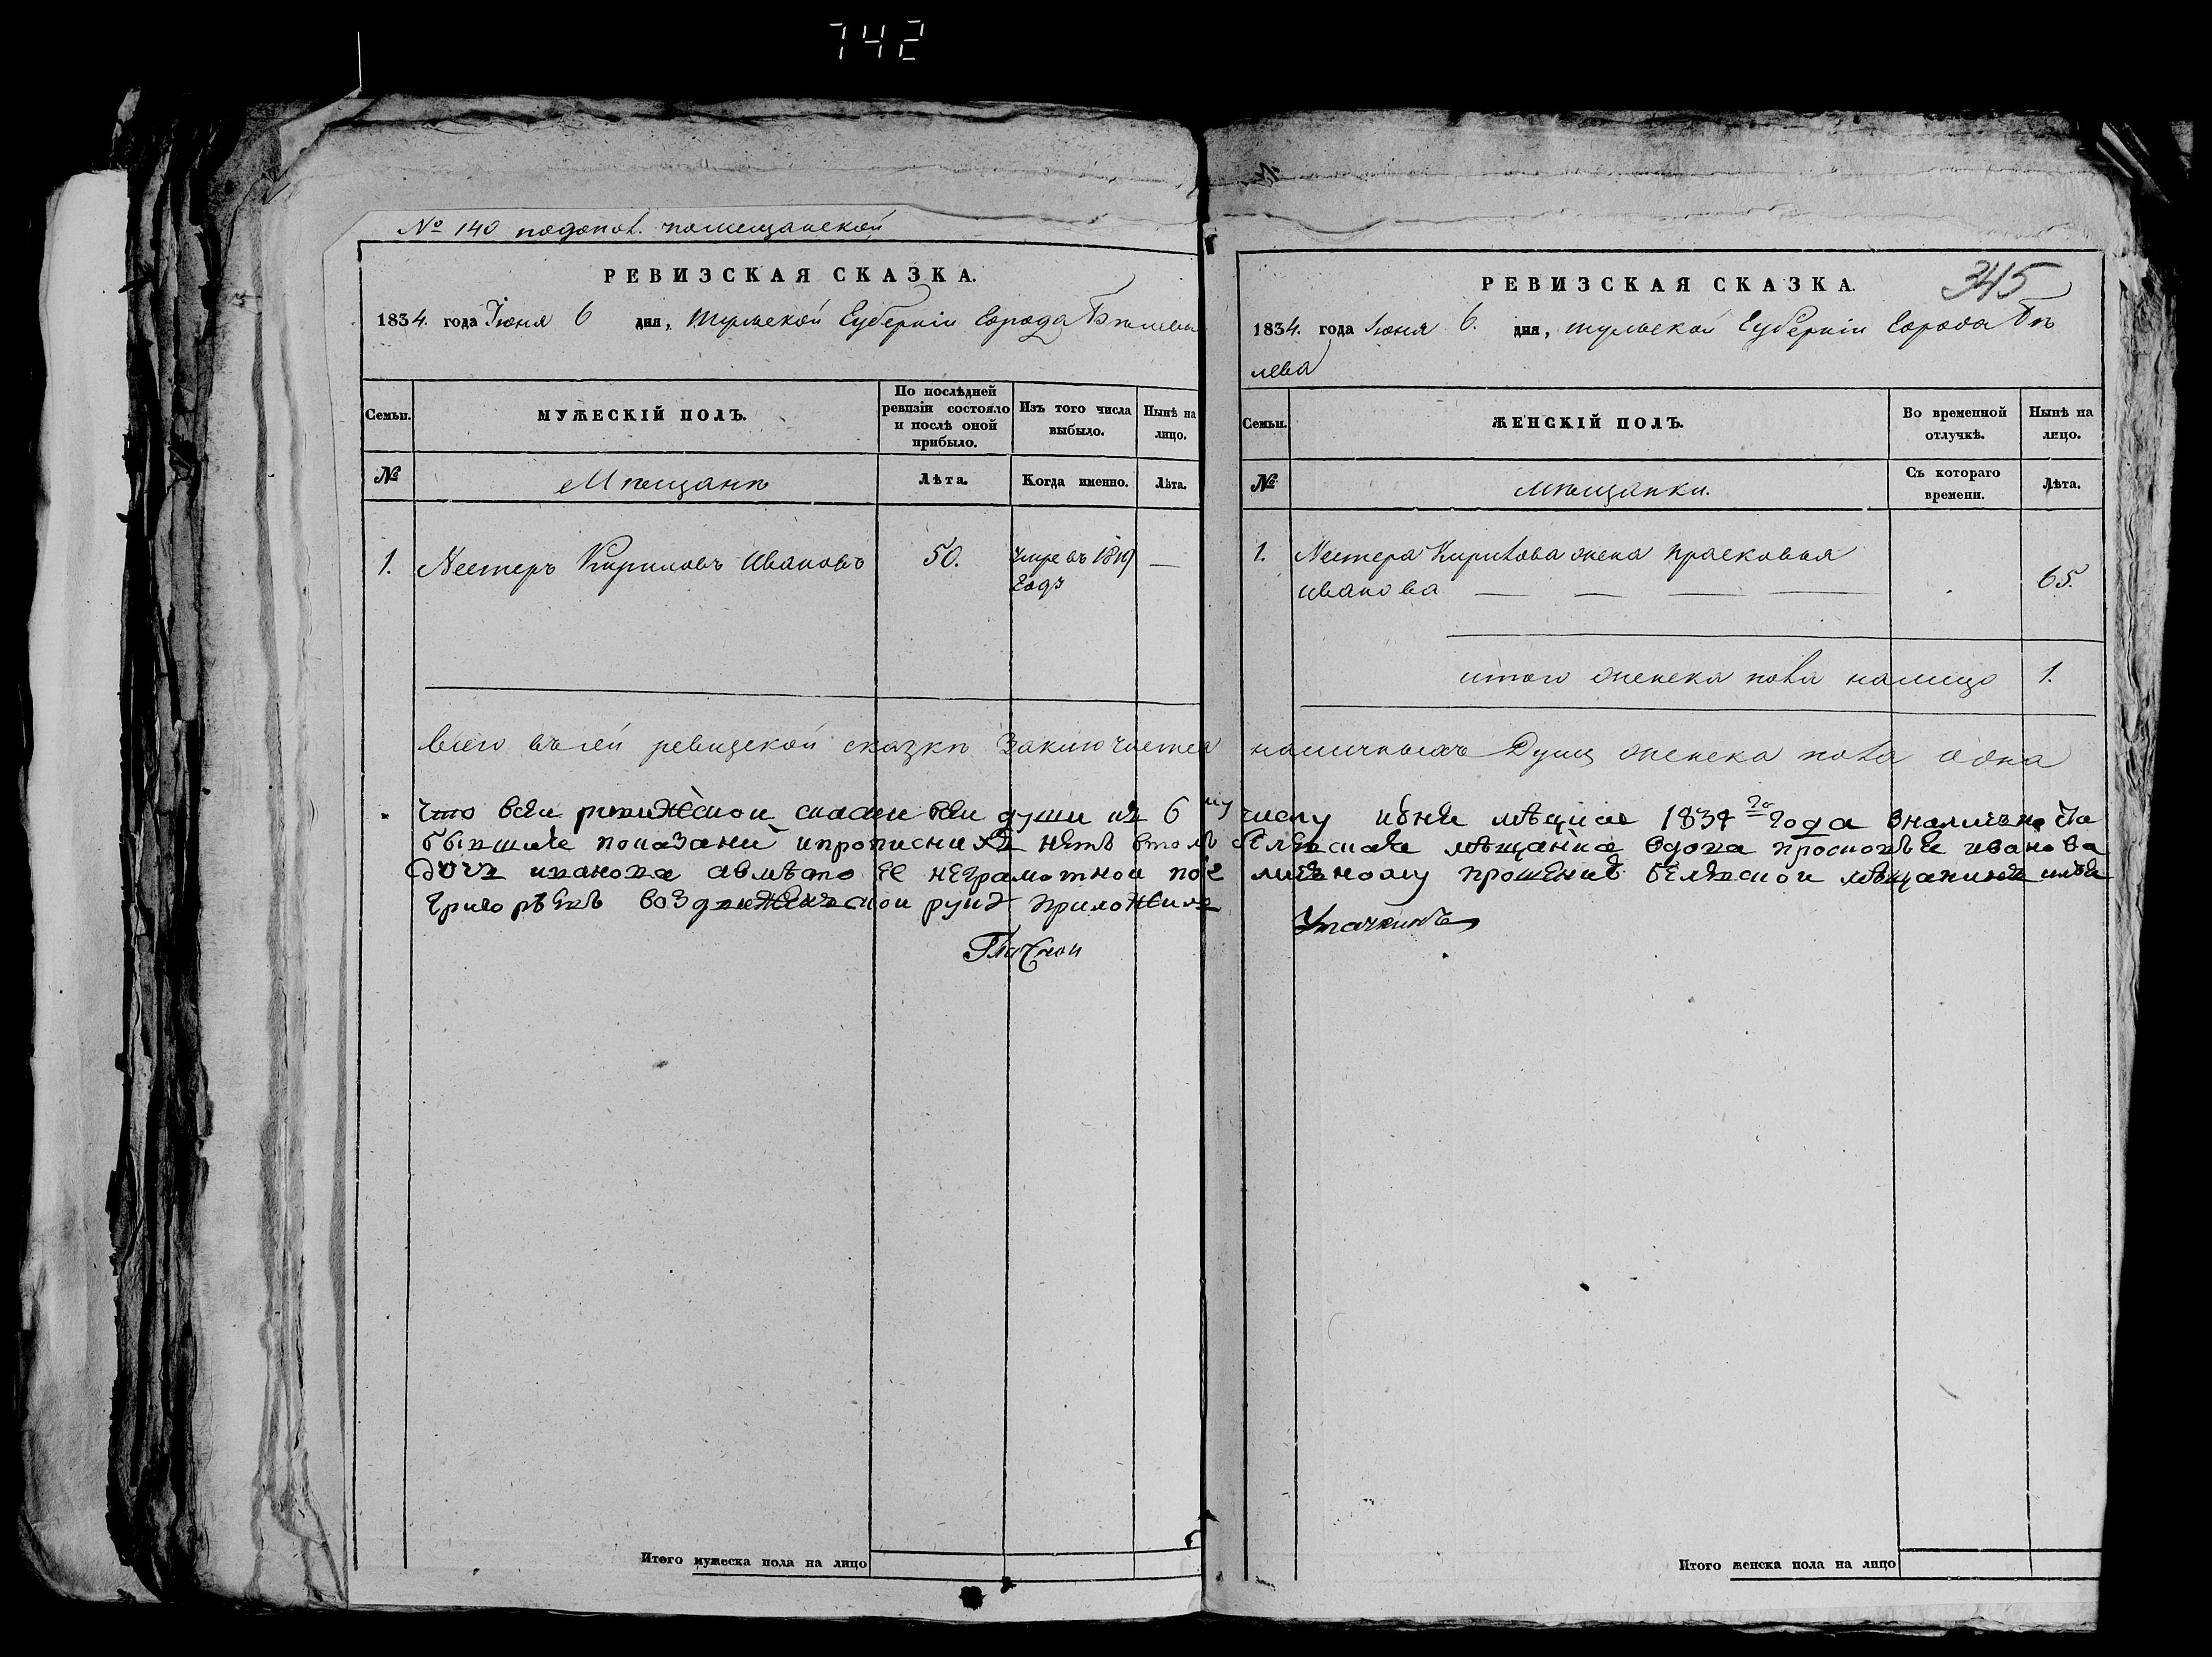 742
№ 140 подопол. помещанской
РЕВИЗСКАЯ СКАЗКА.
1834. года Іюня 6 дня, Тульской Губерніи Города Бѣлева
Семьи. МУЖЕСКІЙ ПОЛЪ. По послѣдней ревизіи состояло и послѣ оной прибыло. Изъ того числа выбыло. Нынѣ на лицо.
№ Мѣщанъ Лѣта. Когда именно. Лѣта.
1. Нестеръ Кириловъ Ивановъ 50. умре въ 1819 —
годѣ
Итого мужеска пола на лицо
345
РЕВИЗСКАЯ СКАЗКА.
1834. года Іюня 6. дня, Тульской Губерніи Города Бѣ
лева
Семьи. ЖЕНСКІЙ ПОЛЪ. Во временной отлучкѣ. Нынѣ на лицо.
№ Мѣщанки. Съ котораго времени. Лѣта.
1. Нестера Кирилова жена Прасковья
Иванова — — — — 65.
итого женска пола налицо 1.
всего въ сей ревизской сказкѣ заключается наличныхъ душъ женска пола одна
Что всеи души 6 му числу июня месица 1834 го года
показани ипрописних нетъ втомъ мещанка вдова иванова
иванова авместо ее неграмотнои пое личному прошению белевскои мещанинъ
григорьевъ руку приложилъ
Гласнои
Уточкинъ
Итого женска пола на лицо